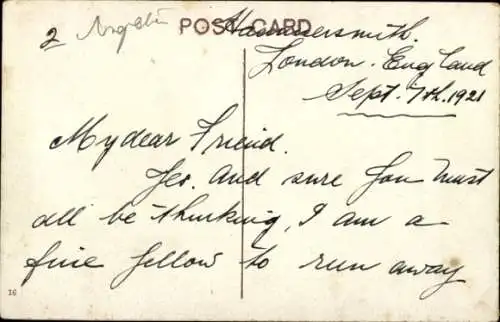 2
POST CARD
Hammersmith.
London. England
Sept. 7th. 1921
My dear Friend.
Yes. And sure you must
all be thinking, I am a
fine fellow to run away
16